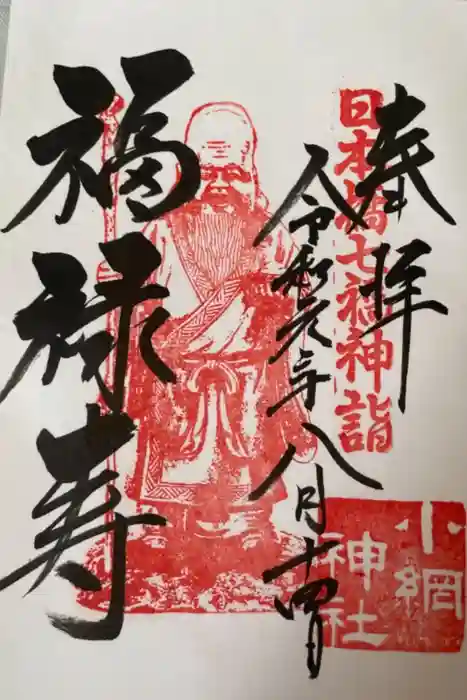 奉拝
日本橋七福神詣
令和元年八月十四日
福禄寿
小網
神社